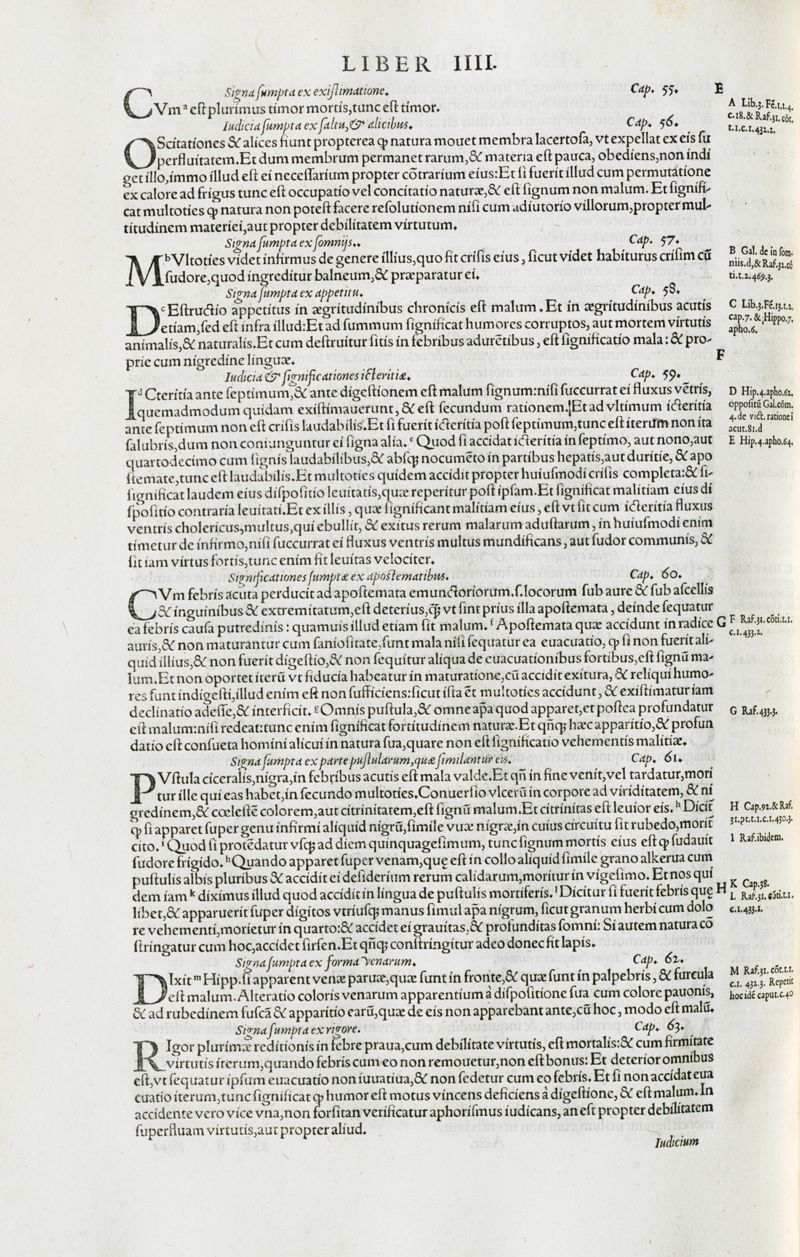 LIBER IIII.
Signa sumpta ex existimatione. Cap. 55. E
CVm ᵃ est plurimus timor mortis,tunc est timor.
Iudicia sumpta ex saltu,& alicibus. Cap. 56.
OScitationes & alices fiunt propterea ꝙ natura mouet membra lacertosa, vt expellat ex eis su
perfluitatem.Et dum membrum permanet rarum,& materia est pauca, obediens,non indi
get illo,immo illud est ei necessarium propter cõtrarium eius:Et si fuerit illud cum permutatione
ex calore ad frigus tunc est occupatio vel concitatio naturæ,& est signum non malum. Et signifi-
cat multoties ꝙ natura non potest facere resolutionem nisi cum adiutorio villorum,propter mul-
titudinem materiei,aut propter debilitatem virtutum.
Signa sumpta ex somnijs. Cap. 57.
MᵇVltoties videt infirmus de genere illius,quo fit crisis eius, sicut videt habiturus crisim cũ
sudore,quod ingreditur balneum,& præparatur ei.
Signa sumpta ex appetitu. Cap. 58.
DᶜEstructio appetitus in ægritudinibus chronicis est malum. Et in ægritudinibus acutis
etiam,sed est infra illud:Et ad summum significat humores corruptos, aut mortem virtutis
animalis,& naturalis.Et cum destruitur sitis in febribus adurẽtibus, est significatio mala: & pro-
prie cum nigredine linguæ. F
Iudicia & significationes icteritiæ. Cap. 59.
IᵈCteritia ante septimum,& ante digestionem est malum signum:nisi succurrat ei fluxus vẽtris,
quemadmodum quidam existimauerunt, & est secundum rationem. Et ad vltimum icteritia
ante septimum non est crisis laudabilis.Et si fuerit icteritia post septimum,tunc est iterum non ita
salubris,dum non coniunguntur ei signa alia.ᵉ Quod si accidat icteritia in septimo, aut nono,aut
quartodecimo cum signis laudabilibus,& absq; nocumẽto in partibus hepatis,aut duritie, & apo
stemate,tunc est laudabilis.Et multoties quidem accidit propter huiusmodi crisis completa:& si-
significat laudem eius dispositio leuitatis,quæ reperitur post ipsam.Et significat malitiam eius di
spositio contraria leuitati.Et ex illis, quæ significant malitiam eius, est vt sit cum icteritia fluxus
ventris cholericus,multus,qui ebullit, & exitus rerum malarum adustarum, in huiusmodi enim
timetur de infirmo,nisi succurrat ei fluxus ventris multus mundificans, aut sudor communis, &
sit iam virtus fortis,tunc enim fit leuitas velociter.
Significationes sumptæ ex apostematibus. Cap. 60.
CVm febris acuta perducit ad apostemata emunctoriorum.s.locorum sub aure & sub ascellis
& inguinibus & extremitatum,est deterius,ꝙ̃ vt sint prius illa apostemata, deinde sequatur
ea febris causa putredinis: quamuis illud etiam sit malum. ᶠApostemata quæ accidunt in radice G
auris,& non maturantur cum saniositate,sunt mala nisi sequatur ea euacuatio, ꝙ si non fuerit ali-
quid illius,& non fuerit digestio,& non sequitur aliqua de euacuationibus fortibus,est signũ ma-
lum.Et non oportet iterũ vt fiducia habeatur in maturatione,cũ accidit exitura, & reliqui humo-
res sunt indigesti,illud enim est non sufficiens:sicut ista ẽt multoties accidunt, & existimatur iam
declinatio adesse,& interficit. ᵍOmnis pustula,& omne ap̃a quod apparet,et postea profundatur
est malum:nisi redeat:tunc enim significat fortitudinem naturæ.Et qñq; hæc apparitio,& profun
datio est consueta homini alicui in natura sua,quare non est significatio vehementis malitiæ.
Signa sumpta ex parte pustularum,quæ similantur eis. Cap. 61.
PVstula ciceralis,nigra,in febribus acutis est mala valde.Et qñ in fine venit,vel tardatur,mori
tur ille qui eas habet,in secundo multoties.Conuersio vlcerũ in corpore ad viriditatem, & ni
gredinem,& cœlestẽ colorem,aut citrinitatem,est signũ malum.Et citrinitas est leuior eis. ʰ Dicit̃
ꝙ si apparet super genu infirmi aliquid nigrũ,simile vuæ nigræ,in cuius circuitu sit rubedo,morit̃
cito.ⁱ Quod si protẽdatur vsq; ad diem quinquagesimum, tunc signum mortis eius est ꝙ sudauit
sudore frigido. ʰQuando apparet super venam,quę est in collo aliquid simile grano alkerua cum
pustulis albis pluribus & accidit ei desiderium rerum calidarum,moritur in vigesimo. Et nos qui
dem iam ᵏ diximus illud quod accidit in lingua de pustulis mortiferis. ˡDicitur si fuerit febris quę H
libet,& apparuerit super digitos vtriusq; manus simul ap̃a nigrum, sicut granum herbi cum dolo
re vehementi,morietur in quarto:& accidet ei grauitas,& profunditas somni: Si autem natura cõ
stringatur cum hoc,accidet sirsen.Et qñq; constringitur adeo donec fit lapis.
Signa sumpta ex forma venarum. Cap. 62.
DIxit ᵐ Hipp.si apparent venæ paruæ,quæ sunt in fronte,& quæ sunt in palpebris, & furcula
est malum.Alteratio coloris venarum apparentium à dispositione sua cum colore pauonis,
& ad rubedinem fuscã & apparitio earũ,quæ de eis non apparebant ante,cũ hoc, modo est malũ.
Signa sumpta ex rigore. Cap. 63.
RIgor plurimæ reditionis in febre praua,cum debilitate virtutis, est mortalis:& cum firmitate
virtutis iterum,quando febris cum eo non remouetur,non est bonus: Et deterior omnibus
est,vt sequatur ipsum euacuatio non iuuatiua,& non sedetur cum eo febris. Et si non accidat eua
cuatio iterum,tunc significat ꝙ humor est motus vincens deficiens à digestione, & est malum. In
accidente vero vice vna,non forsitan verificatur aphorismus iudicans, an est propter debilitatem
superfluam virtutis,aut propter aliud.
Iudicium
A Lib.3. Fẽ.1.t.4.
c.18.& Raf.31.cõt.
t.1.c.1.432.2.
B Gal. de in som-
niis.d,& Raf.31.cõ
ti.t.2.469.3.
C Lib.3.Fẽ.13.t.2.
cap.7. & Hippo.7.
apho.6.
D Hip.4.apho.62.
oppositũ Gal.cõm.
4. de vict. rationei
acut.81.d
E Hip.4.apho.64.
F Raf.31. cõti.t.1.
c.1.433.2.
G Raf.433.3.
H Cap.92.& Raf.
31.9t.t.1.c.1.430.3.
I Raf.ibidem.
K Cap.38.
L Raf.31. cõti.t.1.
c.1.433.2.
M Raf.31. cõt.t.1.
c.1. 432.3. Repetit
hoc idẽ caput.c.40